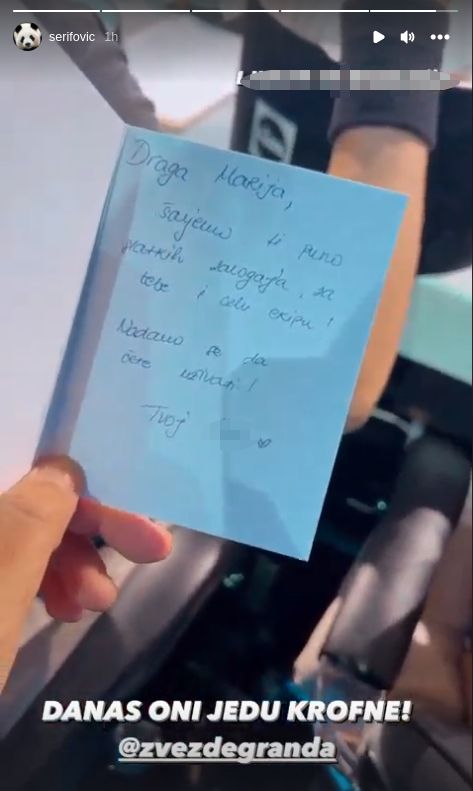 serifovic 1h
Draga Marija,
šaljemo ti puno
slatkih zalogaja, za
tebe i celu ekipu!
Nadamo se da
ćete uživati!
Tvoj
DANAS ONI JEDU KROFNE!
@zvezdegranda